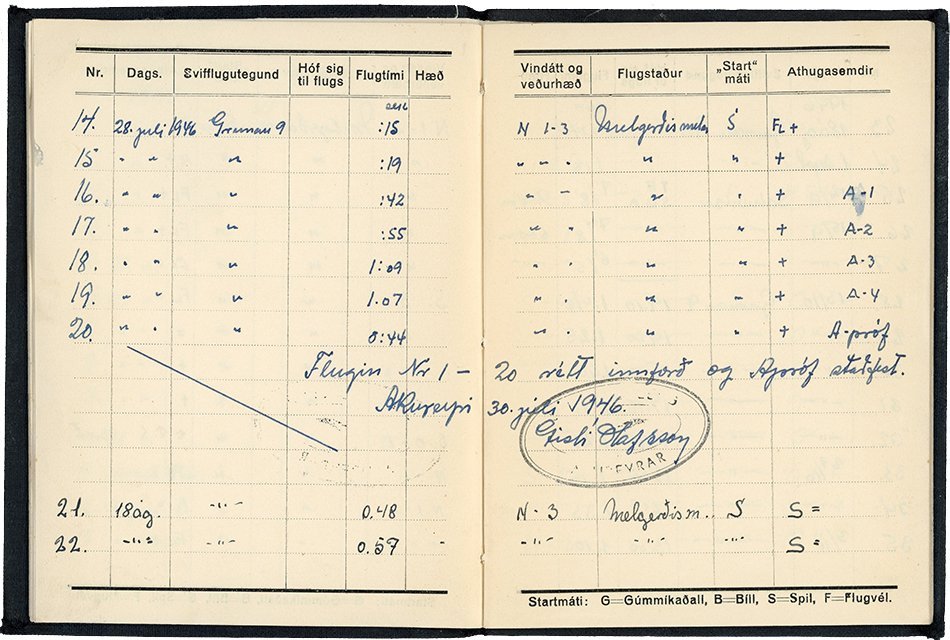 Nr. Dags. Svifflugutegund Hóf sig til flugs Flugtími Hæð Vindátt og veðurhæð Flugstaður „Start“ máti Athugasemdir
14. 28. juli 1946 Grunau 9 :15 N 1-3 Melgerðismela S FL +
15 " " " :19 " " " " " +
16. " " " :42 " " " " + A-1
17. " " " :55 " " " " + A-2
18. " " " 1:09 " " " " + A-3
19. " " " 1.07 " " " " + A-4
20. " " " 0:44 " " " " + A-próf
Flugin Nr 1 – 20 rétt innfærð og A próf staðfest.
Akureyri 30. júli 1946.
Gísli Ólafsson
21. 18 ág. -"- 0.48 N - 3 Melgerðism. S S =
22. -"- -"- 0.57 - -"- -"- -"- S =
Startmáti: G=Gúmmíkaðall, B=Bíll, S=Spil, F=Flugvél.